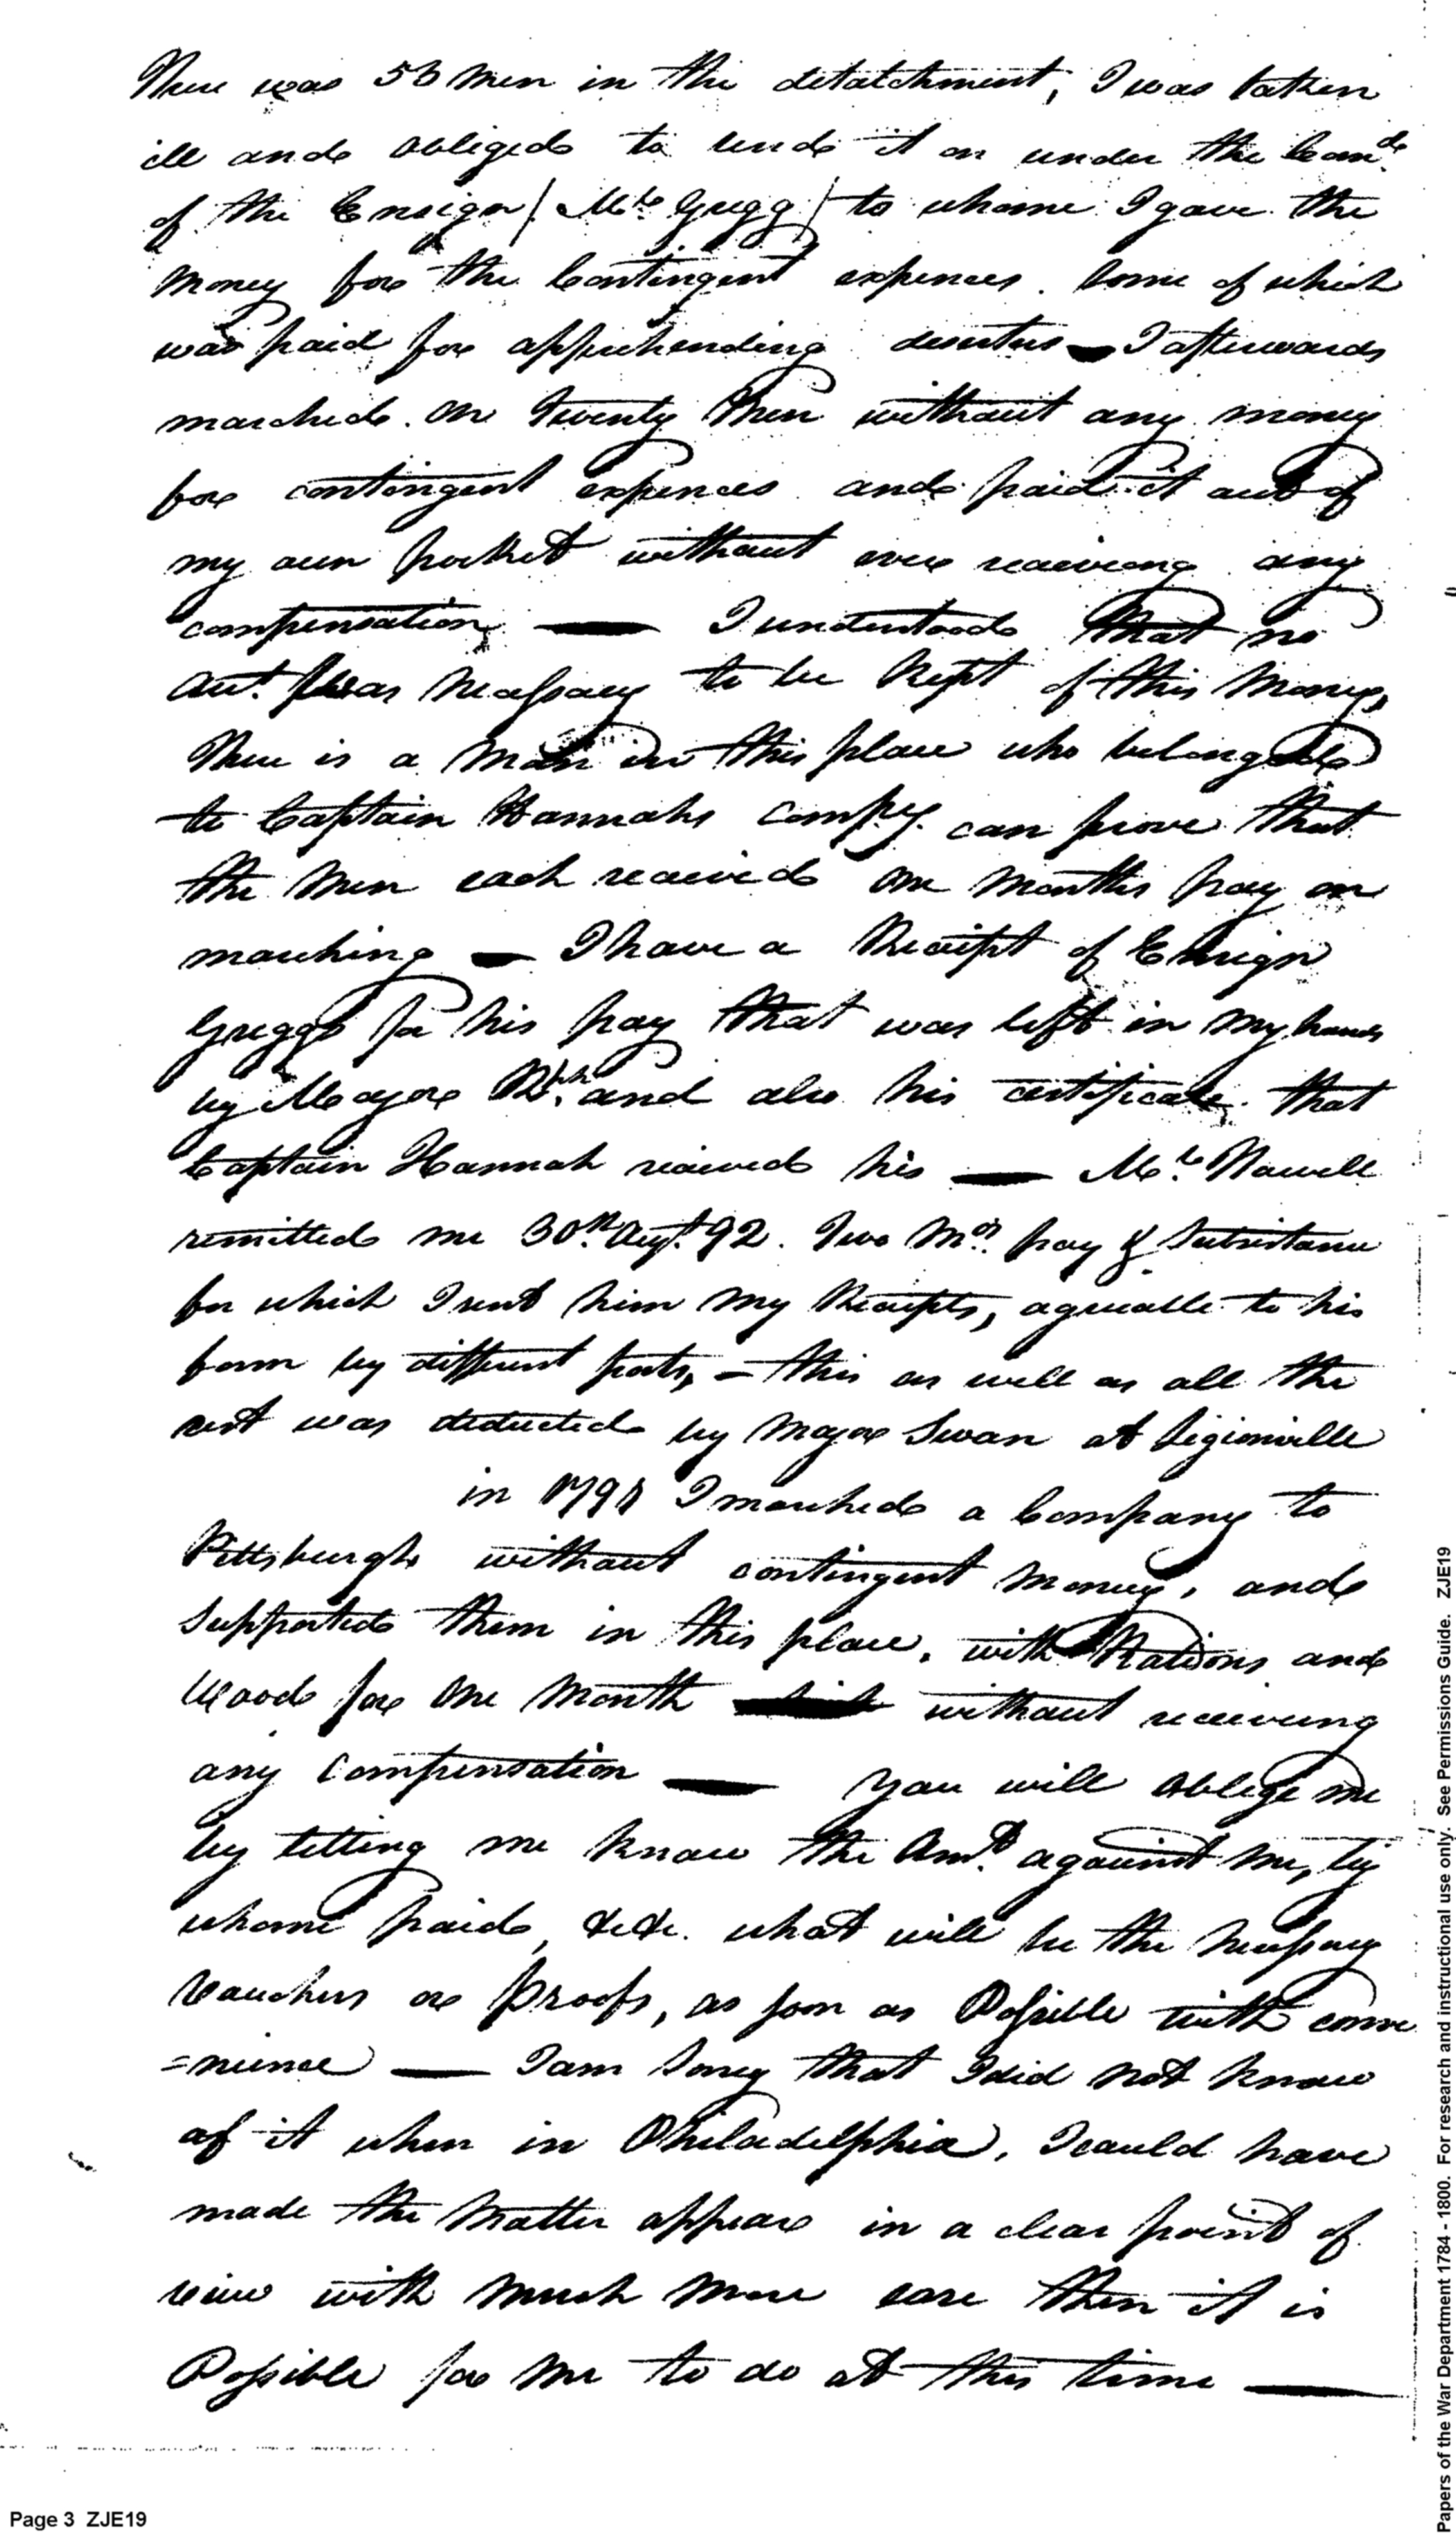 There was 53 men in the detatchment, I was taken
ill and obliged to send it on under the Comd.
of the Ensign / Mr. Gregg / to whome I gave the
money for the Contingent expences. Some of which
was paid for apprehending deserters — I afterwards
marched on Twenty Men without any money
for contingent expences and paid it out of
my own pocket without ever receiving any
compensation, — I understood that no
acct. was Necessary to be Kept of this Money,
There is a Man in this place who belonged
to Captain Hannahs Compy. can prove that
the Men each received one Months pay on
marching — I have a Receipt of Ensign
Greggs for his pay that was left in my hands
by Mayor and also his certificate that
Captain Hannah received his — Mr. Howell
remitted me 30th. Augt. 92. Two Mos. pay & Subsistance
for which I sent him my Receipts, agreeable to his
form by different posts, — this as well as all the
rest was deducted by Major Swan at Legionville
in I marched a Company to
Pittsburgh without contingent Money, and
Supported them in this place, with Rations and
Wood for One Month without receiving
any Compensation — You will Oblige me
by letting me know the Amt. against me, by
whome paid, &c&c. what will be the Necessary
Vouchers or Proofs, as soon as Possible with conve
=nience — I am Sorry that I did not know
of it when in Philadelphia, I could have
made the Matter appear in a clear point of
view with much more ease then it is
Possible for Me to do at this time —
Page 3 ZJE19
Papers of the War Department 1784 - 1800. For research and instructional use only. See Permissions Guide. ZJE19